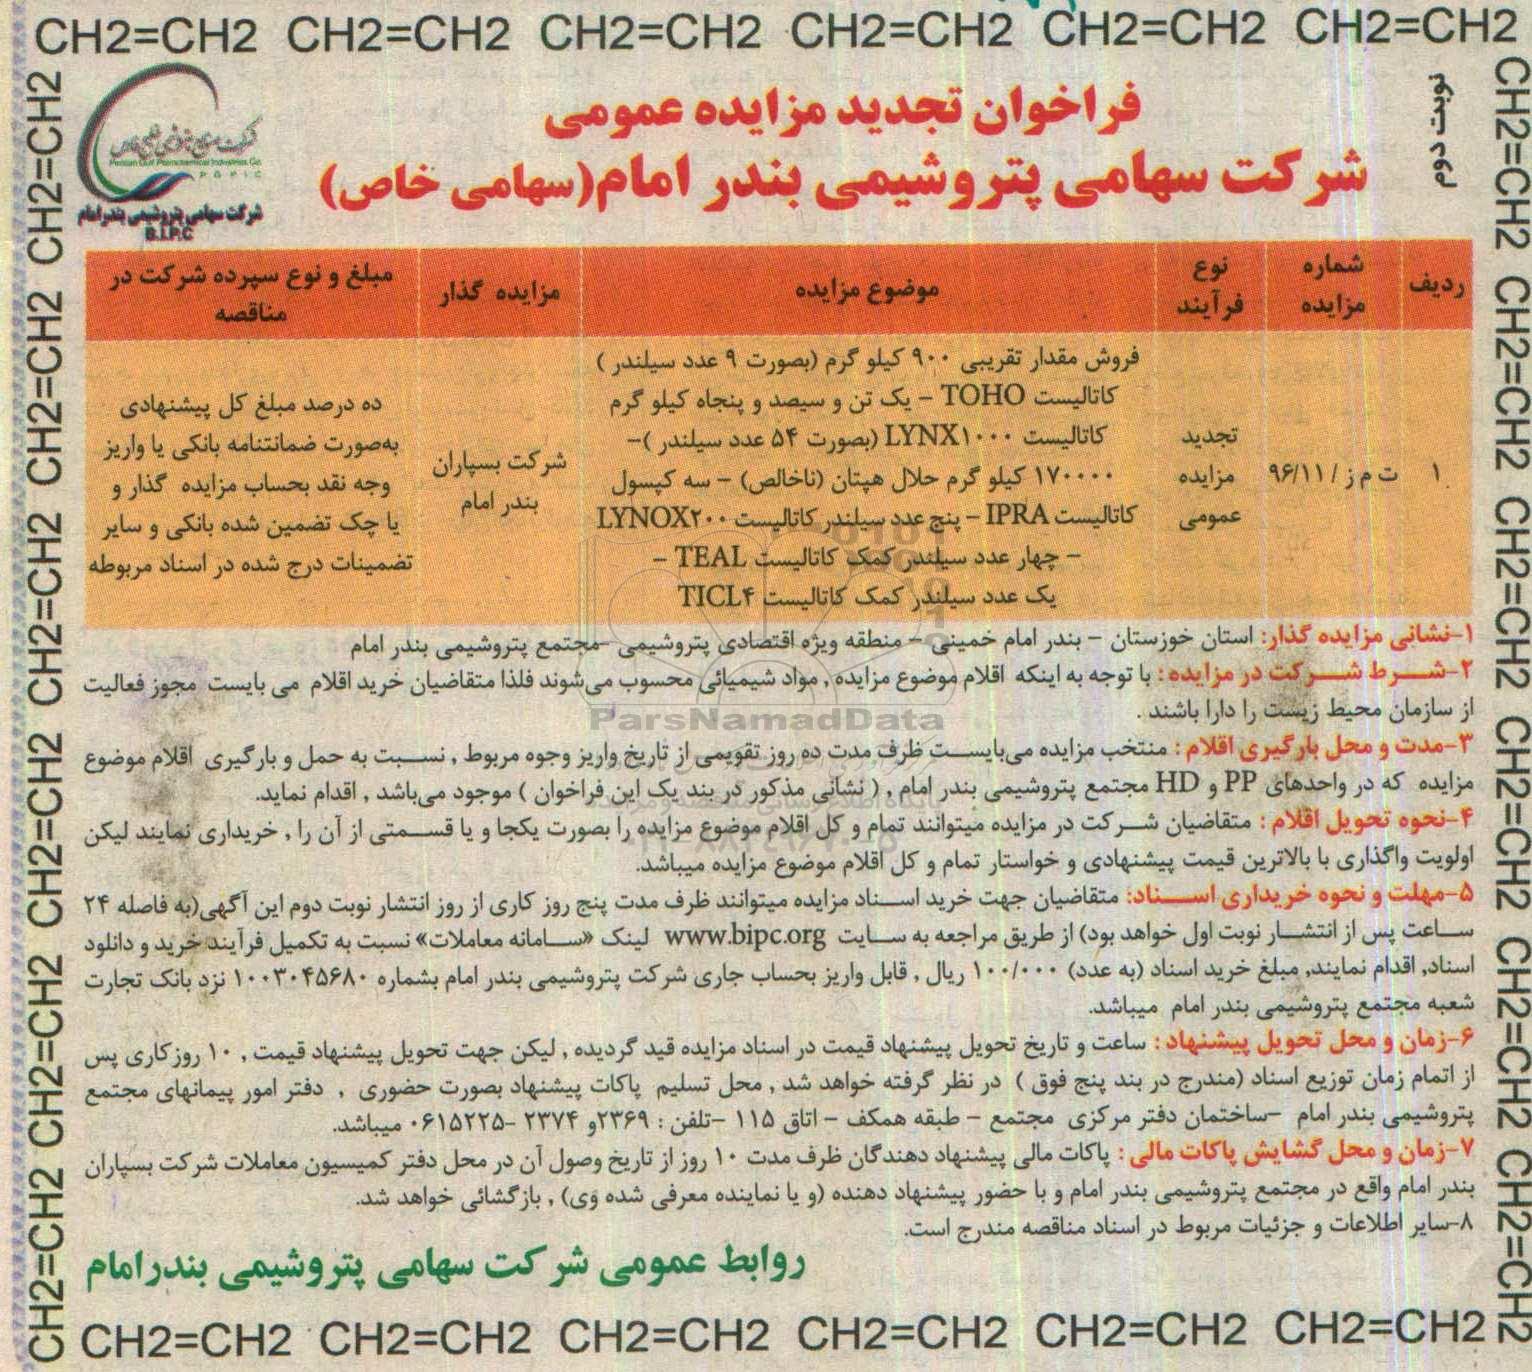 CH2=CH2 CH2=CH2 CH2=CH2 CH2=CH2 CH2=CH2 CH2=CH2
نوبت دوم
فراخوان تجدید مزایده عمومی
شرکت سهامی پتروشیمی بندر امام(سهامی خاص)
شرکت صنایع پتروشیمی خلیج فارس
Persian Gulf Petrochemical Industries Co
P G P I C
شرکت سهامی پتروشیمی بندرامام
B.I.P.C
ردیف
شماره
مزایده
نوع
فرآیند
موضوع مزایده
مزایده گذار
مبلغ و نوع سپرده شرکت در
مناقصه
۱
ت م ز / ۹۶/۱۱
تجدید
مزایده
عمومی
فروش مقدار تقریبی ۹۰۰ کیلو گرم (بصورت ۹ عدد سیلندر )
کاتالیست TOHO - یک تن و سیصد و پنجاه کیلو گرم
کاتالیست LYNX۱۰۰۰ (بصورت ۵۴ عدد سیلندر )-
۱۷۰۰۰۰ کیلو گرم حلال هپتان (ناخالص) - سه کپسول
کاتالیست IPRA - پنج عدد سیلندر کاتالیست LYNOX۲۰۰
- چهار عدد سیلندر کمک کاتالیست TEAL -
یک عدد سیلندر کمک کاتالیست TICL۴
شرکت بسپاران
بندر امام
ده درصد مبلغ کل پیشنهادی
به‌صورت ضمانتنامه بانکی یا واریز
وجه نقد بحساب مزایده گذار و
یا چک تضمین شده بانکی و سایر
تضمینات درج شده در اسناد مربوطه
۱-نشانی مزایده گذار: استان خوزستان - بندر امام خمینی - منطقه ویژه اقتصادی پتروشیمی -مجتمع پتروشیمی بندر امام
۲-شرط شرکت در مزایده : با توجه به اینکه اقلام موضوع مزایده , مواد شیمیائی محسوب می‌شوند فلذا متقاضیان خرید اقلام می بایست مجوز فعالیت
از سازمان محیط زیست را دارا باشند .
۳-مدت و محل بارگیری اقلام : منتخب مزایده می‌بایست ظرف مدت ده روز تقویمی از تاریخ واریز وجوه مربوط , نسبت به حمل و بارگیری اقلام موضوع
مزایده که در واحدهای PP و HD مجتمع پتروشیمی بندر امام , ( نشانی مذکور در بند یک این فراخوان ) موجود می‌باشد , اقدام نماید.
۴-نحوه تحویل اقلام : متقاضیان شرکت در مزایده میتوانند تمام و کل اقلام موضوع مزایده را بصورت یکجا و یا قسمتی از آن را , خریداری نمایند لیکن
اولویت واگذاری با بالاترین قیمت پیشنهادی و خواستار تمام و کل اقلام موضوع مزایده میباشد.
۵-مهلت و نحوه خریداری اسناد: متقاضیان جهت خرید اسناد مزایده میتوانند ظرف مدت پنج روز کاری از روز انتشار نوبت دوم این آگهی(به فاصله ۲۴
ساعت پس از انتشار نوبت اول خواهد بود) از طریق مراجعه به سایت www.bipc.org لینک «سامانه معاملات» نسبت به تکمیل فرآیند خرید و دانلود
اسناد, اقدام نمایند, مبلغ خرید اسناد (به عدد) ۱۰۰/۰۰۰ ریال , قابل واریز بحساب جاری شرکت پتروشیمی بندر امام بشماره ۱۰۰۳۰۴۵۶۸۰ نزد بانک تجارت
شعبه مجتمع پتروشیمی بندر امام میباشد.
۶-زمان و محل تحویل پیشنهاد : ساعت و تاریخ تحویل پیشنهاد قیمت در اسناد مزایده قید گردیده , لیکن جهت تحویل پیشنهاد قیمت , ۱۰ روزکاری پس
از اتمام زمان توزیع اسناد (مندرج در بند پنج فوق ) در نظر گرفته خواهد شد , محل تسلیم پاکات پیشنهاد بصورت حضوری , دفتر امور پیمانهای مجتمع
پتروشیمی بندر امام -ساختمان دفتر مرکزی مجتمع - طبقه همکف - اتاق ۱۱۵ -تلفن : ۲۳۶۹و ۲۳۷۴ -۰۶۱۵۲۲۵ میباشد.
۷-زمان و محل گشایش پاکات مالی : پاکات مالی پیشنهاد دهندگان ظرف مدت ۱۰ روز از تاریخ وصول آن در محل دفتر کمیسیون معاملات شرکت بسپاران
بندر امام واقع در مجتمع پتروشیمی بندر امام و با حضور پیشنهاد دهنده (و یا نماینده معرفی شده وی) , بازگشائی خواهد شد.
۸-سایر اطلاعات و جزئیات مربوط در اسناد مناقصه مندرج است.
روابط عمومی شرکت سهامی پتروشیمی بندرامام
ParsNamadData
CH2=CH2 CH2=CH2 CH2=CH2 CH2=CH2 CH2=CH2 CH2=CH2
CH2=CH2 CH2=CH2 CH2=CH2 CH2=CH2 CH2=CH2 CH2=CH2
CH2=CH2 CH2=CH2 CH2=CH2 CH2=CH2 CH2=CH2 CH2=CH2